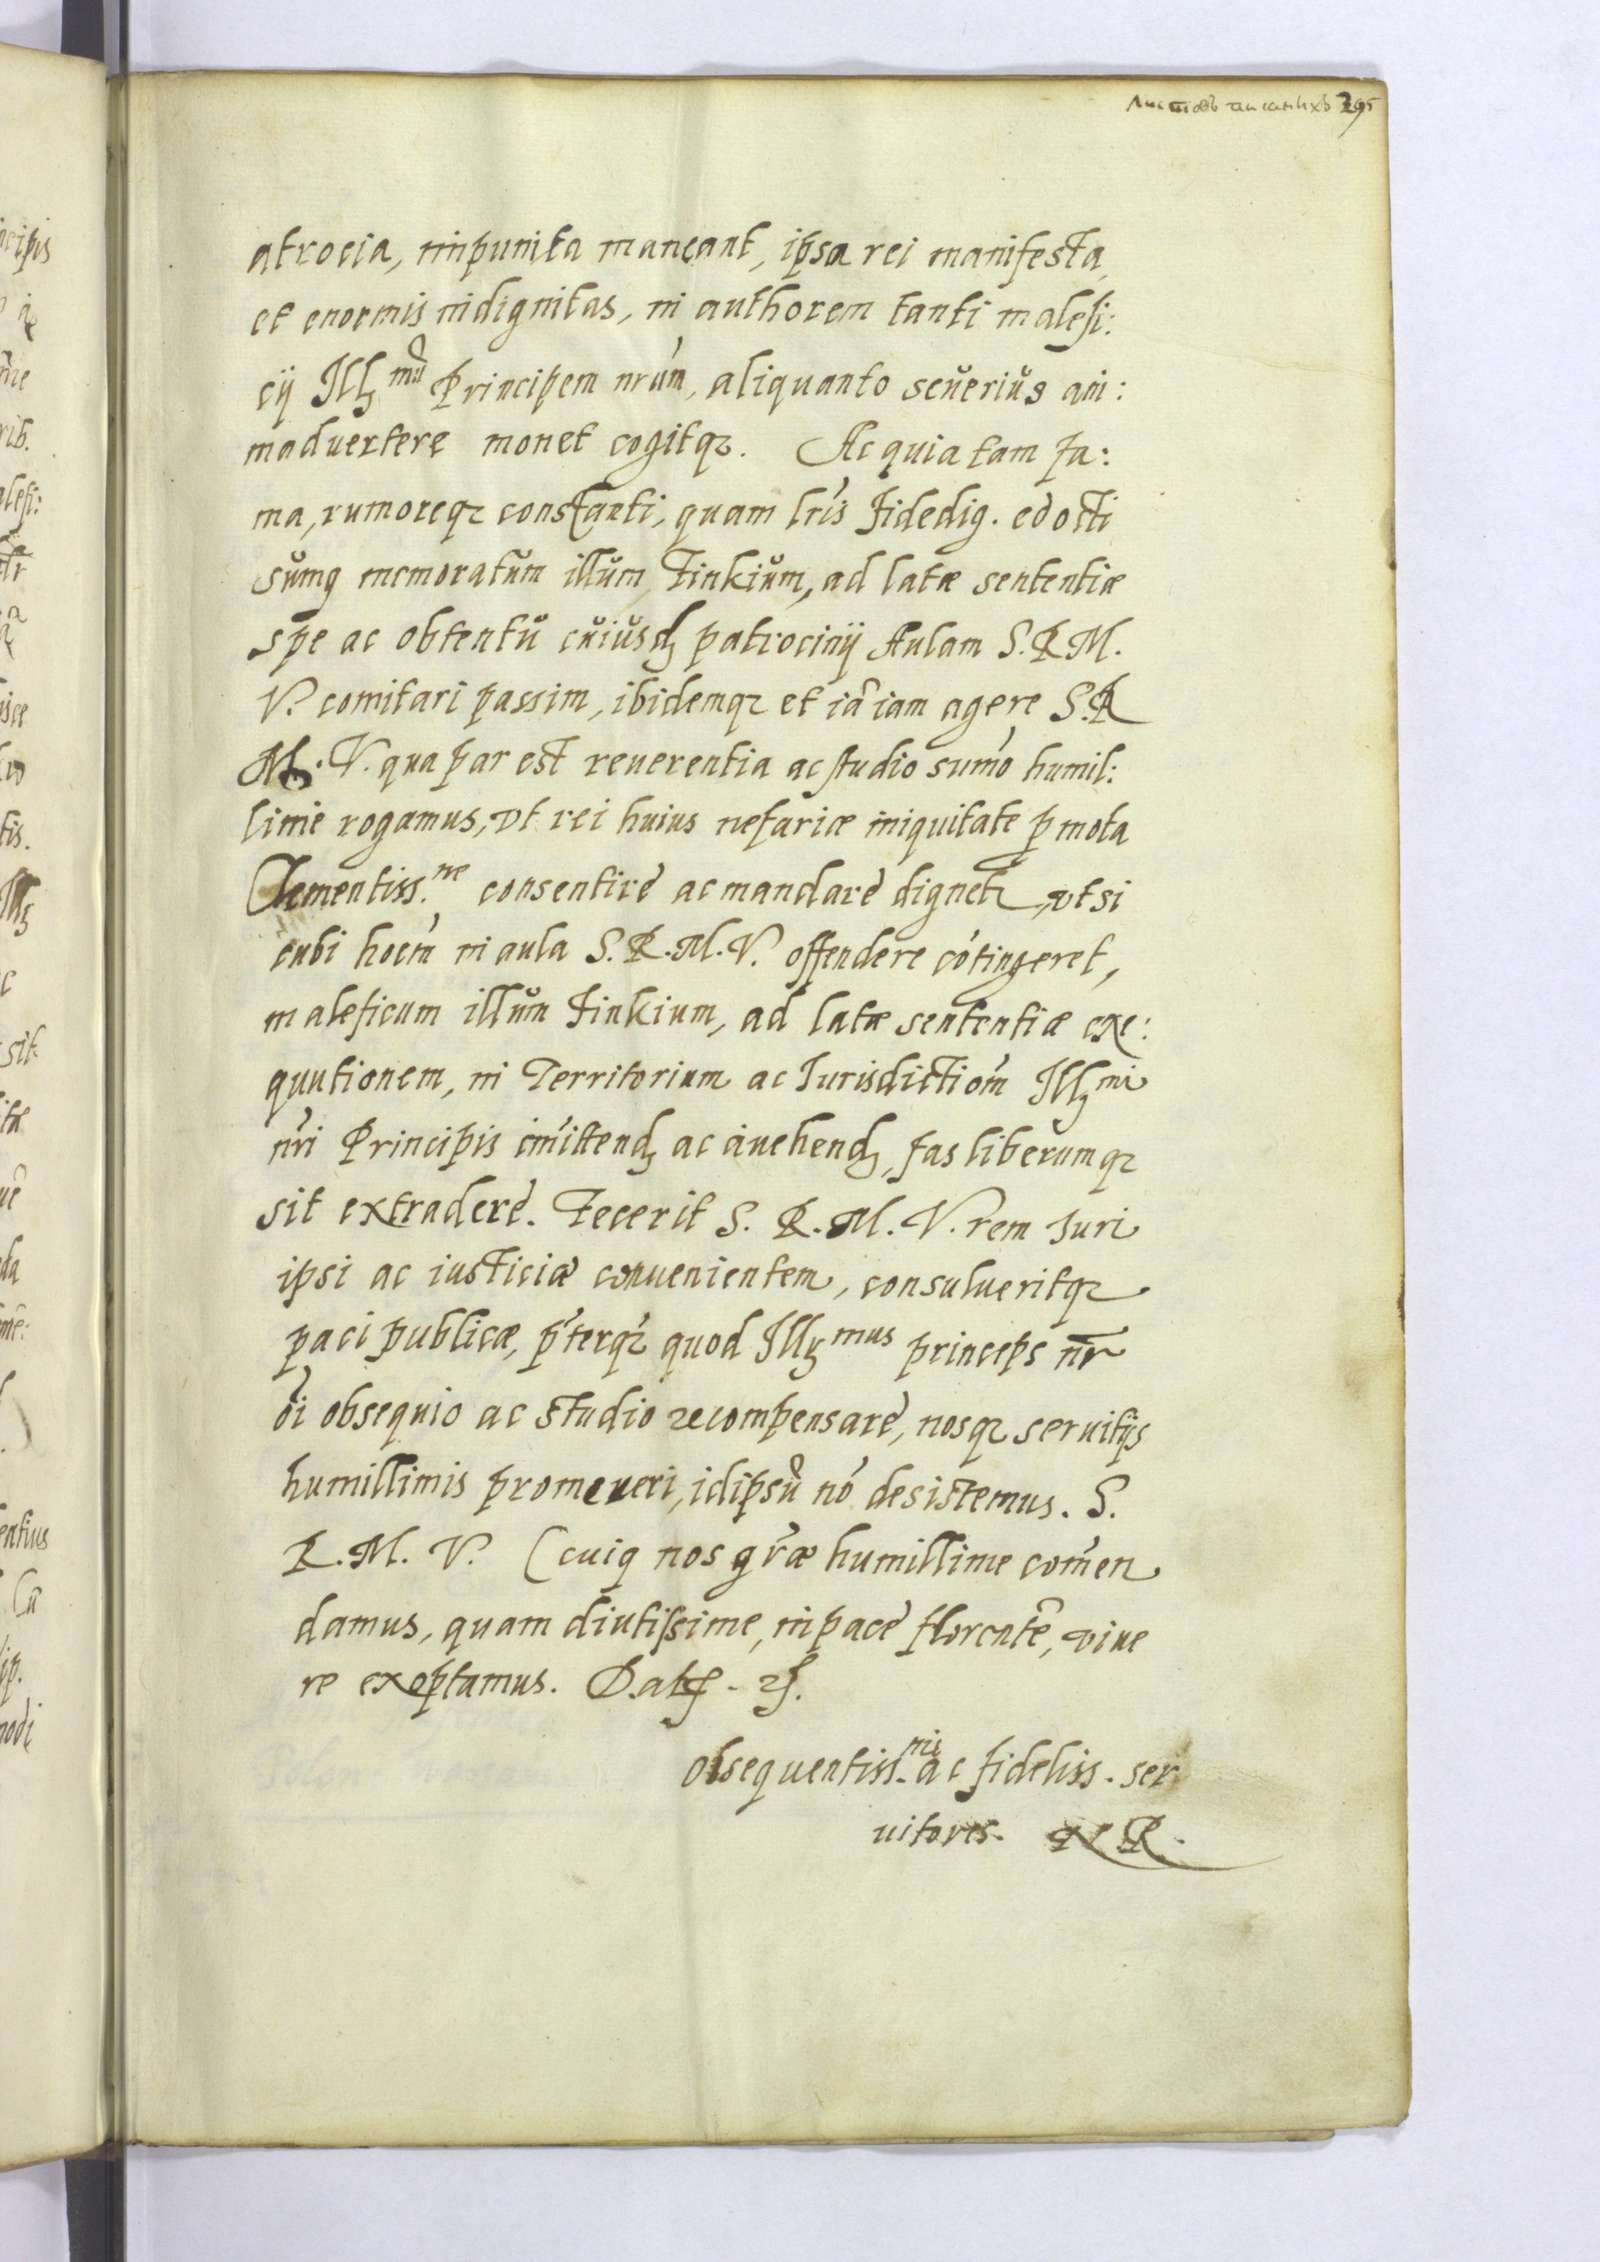 Листовъ писаныхъ 295
atrocia, impunita maneant, ipsa rei manifesta
et enormis indignitas, in authorem tanti malefi:
cij Illmũ Principem nrúm, aliquanto seŭeriŭs ani:
maduertere monet cogitq. Ac quia tam fa:
ma, rumoreq constanti, quam lrís Fidedig. edocti
sŭmq memoratŭm illŭm Finkiŭm, ad latæ sententiæ
spe ac obtentŭ cŭiŭsd patrocinij Aulam S. R. M.
V. comitari passim, ibidemq et iã iam agere S. R
M. V. qua par est reuerentia ac studio sumó humil:
lime rogamus, vt rei huius nefariæ iniquitate pmota
Clementiss.ne consentire ac mandare dignetr, vt si
cubi hoem in aula S. R. M. V. offendere cótingeret,
maleficum illŭm Finkium, ad latæ sententiæ exe:
quutionem, in Territorium ac Iurisdictiom Illmi
nri Principis imittend ac auehend, fas liberumq
sit extradere. Fecerit S. R. M. V. rem Iuri
ipsi ac iusticiæ conuenientem, consulueritq
paci publicæ, pterq quod Illmus princeps nr
oi obsequio ac studio recompensare, nosq seruitijs
humillimis promereri, idipsũ nó desistemus. S.
R. M. V. (cuiq nos græ humillime comen
damus, quam diutissime, in pace florentẽ, viue
re exoptamus. Dat. 2c.
Obsequentiss.mi ac fideliss. ser
uitores. N R.